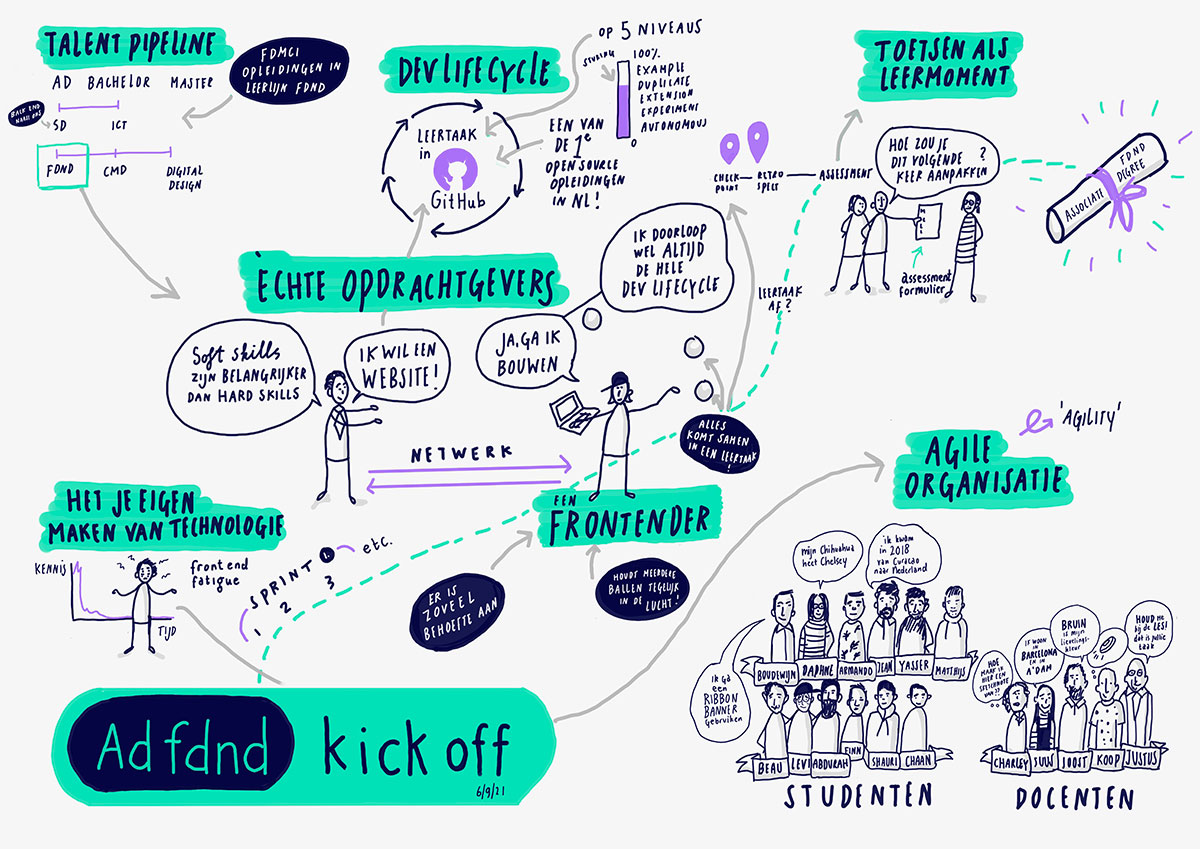 TALENT PIPELINE
AD BACHELOR MASTER
BACK END
SD ICT
FDND CMD DIGITAL
DESIGN
FDMCI
OPLEIDINGEN IN
LEERLIJN FDND
DEV LIFECYCLE
LEERTAAK
in
GitHub
OP 5 NIVEAUS
STURING
100%
EXAMPLE
DUPLICATE
EXTENSION
EXPERIMENT
AUTONOMOUS
0
EEN VAN
DE 1e
OPEN SOURCE
OPLEIDINGEN
IN NL!
TOETSEN ALS
LEERMOMENT
CHECK
POINT
RETRO
SPECT
ASSESSMENT
HOE ZOU JE
DIT VOLGENDE
KEER AANPAKKEN
?
assessment
formulier
ASSOCIATE
FDND
DEGREE
ÈCHTE OPDRACHTGEVERS
Soft skills
ZIJN BELANGRIJKER
DAN HARD SKILLS
IK WIL EEN
WEBSITE!
JA, GA IK
BOUWEN
IK DOORLOOP
WEL ALTIJD
DE HELE
DEV LIFECYCLE
LEERTAAK
AF?
NETWERK
ALLES
KOMT SAMEN
IN EEN LEERTAAK
!
EEN
FRONTENDER
ER IS
ZOVEEL
BEHOEFTE AAN
HOUDT MEERDERE
BALLEN TEGELIJK
IN DE LUCHT!
HET JE EIGEN
MAKEN VAN TECHNOLOGIE
KENNIS
TIJD
front end
fatigue
SPRINT 1. etc.
1 2 3
'AGILITY'
AGILE
ORGANISATIE
mijn Chihuahua
heet Chelsey
ik kwam
in 2018
van Curacao
naar Nederland
Ik ga
een
RIBBON
BANNER
Gebruiken
BOUDEWIJN DAPHNE ARMANDO JEAN YASSER MATTHIJS
BEAU LEVI ABDURAH FINN SHAURI CHAAN
STUDENTEN
HOE
MAAK IK
HIER EEN
SKETCHNOTE
VAN??
IK WOON
in
BARCELONA
EN IN
A'DAM
BRUIN
is mijn
lievelings-
kleur
HOUD me
bij de LES!
dat is jullie
taak
CHARLEY SUUS JOOST KOOP JUSTUS
DOCENTEN
Ad fdnd kick off
6/9/21